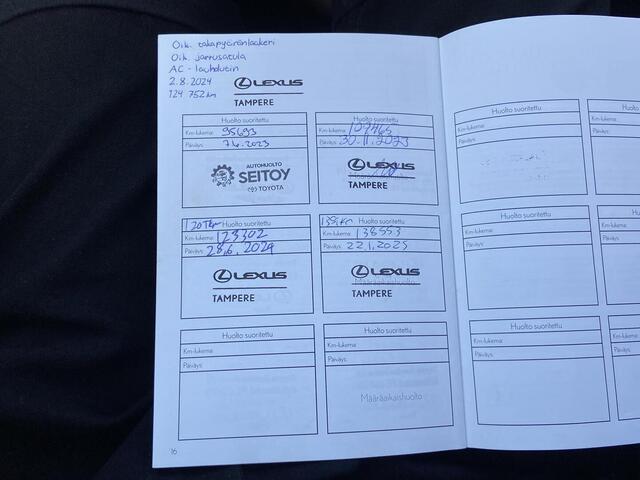 Oik. takapyöränlaakeri
Oik. jarrusatula
AC-lauhdutin
2.8.2024
124 752 km
LEXUS
TAMPERE
Huolto suoritettu
Km-lukema: 95693
Päiväys: 7.6.2023
AUTOHUOLTO
SEITOY
TOYOTA
Huolto suoritettu
Km-lukema: 109465
Päiväys: 30.11.2023
LEXUS
TAMPERE
120Tkm Huolto suoritettu
Km-lukema: 123302
Päiväys: 28.6.2024
LEXUS
TAMPERE
Huolto suoritettu
Km-lukema: 138553
Päiväys: 22.1.2025
LEXUS
Määräaikaishuolto
TAMPERE
Huolto suoritettu
Km-lukema:
Päiväys:
Huolto suoritettu
Km-lukema:
Päiväys:
Määräaikaishuolto
16
Huolto suoritettu
Km-lukema:
Päiväys:
Huolto suoritettu
Km-lukema:
Päiväys:
Huolto suoritettu
Km-lukema:
Päiväys: